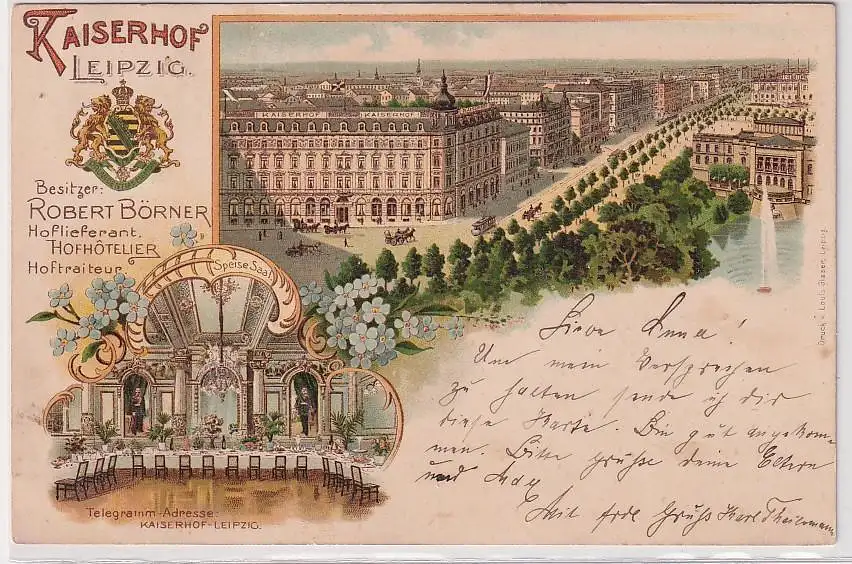 KAISERHOF
LEIPZIG.
KAISERHOF KAISERHOF
Besitzer:
ROBERT BÖRNER
Hoflieferant.
HOFHÔTELIER
Hoftraiteur
Speise Saal
Telegramm-Adresse:
KAISERHOF-LEIPZIG.
Druck v. Louis Glaser, Leipzig.
Liebe Anna!
Um mein Versprechen
zu halten sende ich dir
diese Karte. Bin gut angekom-
men. Bitte grüße deine Eltern
und Max
Mit frdl Gruß Karl Theilemann